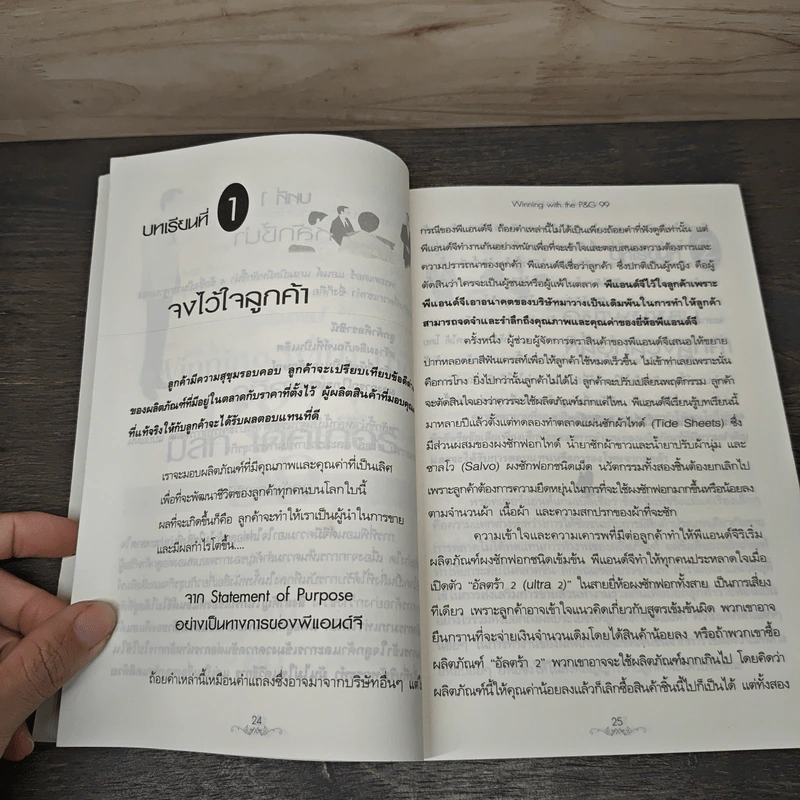 บทเรียนที่ 1
จงไว้ใจลูกค้า
ลูกค้ามีความสุขุมรอบคอบ ลูกค้าจะเปรียบเทียบข้อดี
ของผลิตภัณฑ์ที่มีอยู่ในตลาดกับราคาที่ตั้งไว้ ผู้ผลิตสินค้าที่มอบ
ที่แท้จริงให้กับลูกค้าจะได้รับผลตอบแทนที่ดี
เราจะมอบผลิตภัณฑ์ที่มีคุณภาพและคุณค่าที่เป็นเลิศ
เพื่อที่จะพัฒนาชีวิตของลูกค้าทุกคนบนโลกใบนี้
ผลที่จะเกิดขึ้นก็คือ ลูกค้าจะทำให้เราเป็นผู้นำในการขาย
และมีผลกำไรโตขึ้น....
จาก Statement of Purpose
อย่างเป็นทางการของพีแอนด์จี
ถ้อยคำเหล่านี้เหมือนคำแถลงซึ่งอาจมาจากบริษัทอื่นๆ แต่ใ
24
Winning with the P&G 99
กรณีของพีแอนด์จี ถ้อยคำเหล่านี้ไม่ได้เป็นเพียงถ้อยคำที่ฟังดูดีเท่านั้น แต่
พีแอนด์จีทำงานกันอย่างหนักเพื่อที่จะเข้าใจและตอบสนองความต้องการและ
ความปรารถนาของลูกค้า พีแอนด์จีเชื่อว่าลูกค้า ซึ่งปกติเป็นผู้หญิง คือผู้
ตัดสินว่าใครจะเป็นผู้ชนะหรือผู้แพ้ในตลาด พีแอนด์จีไว้ใจลูกค้าเพราะ
พีแอนด์จีเอาอนาคตของบริษัทมาวางเป็นเดิมพันในการทำให้ลูกค้า
สามารถจดจำและรำลึกถึงคุณภาพและคุณค่าของยี่ห้อพีแอนด์จี
ครั้งหนึ่ง ผู้ช่วยผู้จัดการตราสินค้าของพีแอนด์จีเสนอให้ขยาย
ปากหลอดยาสีฟันเครสท์เพื่อให้ลูกค้าใช้หมดเร็วขึ้น ไม่เข้าท่าเลยเพราะนั่น
คือการโกง ยิ่งไปกว่านั้นลูกค้าไม่ได้โง่ ลูกค้าจะปรับเปลี่ยนพฤติกรรม ลูกค้า
จะตัดสินใจเองว่าควรจะใช้ผลิตภัณฑ์มากแค่ไหน พีแอนด์จีเรียนรู้บทเรียนนี้
มาหลายปีแล้วตั้งแต่ทดลองทำตลาดแผ่นซักผ้าไทด์ (Tide Sheets) ซึ่ง
มีส่วนผสมของผงซักฟอกไทด์ น้ำยาซักผ้าขาวและน้ำยาปรับผ้านุ่ม และ
ซาลโว (Salvo) ผงซักฟอกชนิดเม็ด นวัตกรรมทั้งสองชิ้นต้องยกเลิกไป
เพราะลูกค้าต้องการความยืดหยุ่นในการที่จะใช้ผงซักฟอกมากขึ้นหรือน้อยลง
ตามจำนวนผ้า เนื้อผ้า และความสกปรกของผ้าที่จะซัก
ความเข้าใจและความเคารพที่มีต่อลูกค้าทำให้พีแอนด์จีริเริ่ม
ผลิตภัณฑ์ผงซักฟอกชนิดเข้มข้น พีแอนด์จีทำให้ทุกคนประหลาดใจเมื่อ
เปิดตัว “อัลตร้า 2 (ultra 2)” ในสายยี่ห้อผงซักฟอกทั้งสาย เป็นการเสี่ยง
ทีเดียว เพราะลูกค้าอาจเข้าใจแนวคิดเกี่ยวกับสูตรเข้มข้นผิด พวกเขาอาจ
ยืนกรานที่จะจ่ายเงินจำนวนเดิมโดยได้สินค้าน้อยลง หรือถ้าพวกเขาซื้อ
ผลิตภัณฑ์ “อัลตร้า 2” พวกเขาอาจจะใช้ผลิตภัณฑ์มากเกินไป โดยคิดว่า
ผลิตภัณฑ์นี้ให้คุณค่าน้อยลงแล้วก็เลิกซื้อสินค้าชิ้นนี้ไปก็เป็นได้ แต่ทั้งสอง
25